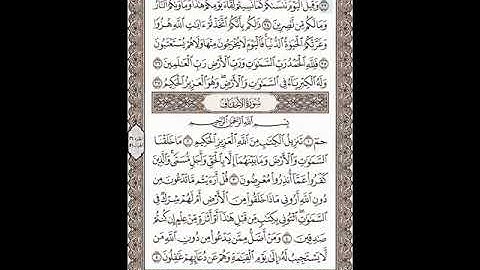 وَقِيلَ ٱلْيَوْمَ نَنسَىٰكُمْ كَمَا نَسِيتُمْ لِقَآءَ يَوْمِكُمْ هَٰذَا وَمَأْوَىٰكُمُ ٱلنَّارُ
وَمَا لَكُم مِّن نَّٰصِرِينَ ٣٤ ذَٰلِكُم بِأَنَّكُمُ ٱتَّخَذْتُمْ ءَايَٰتِ ٱللَّهِ هُزُوًا
وَغَرَّتْكُمُ ٱلْحَيَوٰةُ ٱلدُّنْيَا فَٱلْيَوْمَ لَا يُخْرَجُونَ مِنْهَا وَلَا هُمْ يُسْتَعْتَبُونَ
٣٥ فَلِلَّهِ ٱلْحَمْدُ رَبِّ ٱلسَّمَٰوَٰتِ وَرَبِّ ٱلْأَرْضِ رَبِّ ٱلْعَٰلَمِينَ ٣٦
وَلَهُ ٱلْكِبْرِيَآءُ فِى ٱلسَّمَٰوَٰتِ وَٱلْأَرْضِ وَهُوَ ٱلْعَزِيزُ ٱلْحَكِيمُ ٣٧
سُورَةُ الأَحْقَافِ
بِسْمِ ٱللَّهِ ٱلرَّحْمَٰنِ ٱلرَّحِيمِ
حمٓ ١ تَنزِيلُ ٱلْكِتَٰبِ مِنَ ٱللَّهِ ٱلْعَزِيزِ ٱلْحَكِيمِ ٢ مَا خَلَقْنَا
ٱلسَّمَٰوَٰتِ وَٱلْأَرْضَ وَمَا بَيْنَهُمَآ إِلَّا بِٱلْحَقِّ وَأَجَلٍ مُّسَمًّى وَٱلَّذِينَ
كَفَرُوا۟ عَمَّآ أُنذِرُوا۟ مُعْرِضُونَ ٣ قُلْ أَرَءَيْتُم مَّا تَدْعُونَ مِن
دُونِ ٱللَّهِ أَرُونِى مَاذَا خَلَقُوا۟ مِنَ ٱلْأَرْضِ أَمْ لَهُمْ شِرْكٌ فِى
ٱلسَّمَٰوَٰتِ ٱئْتُونِى بِكِتَٰبٍ مِّن قَبْلِ هَٰذَآ أَوْ أَثَٰرَةٍ مِّنْ عِلْمٍ إِن كُنتُمْ
صَٰدِقِينَ ٤ وَمَنْ أَضَلُّ مِمَّن يَدْعُوا۟ مِن دُونِ ٱللَّهِ مَن
لَّا يَسْتَجِيبُ لَهُۥٓ إِلَىٰ يَوْمِ ٱلْقِيَٰمَةِ وَهُمْ عَن دُعَآئِهِمْ غَٰفِلُونَ ٥